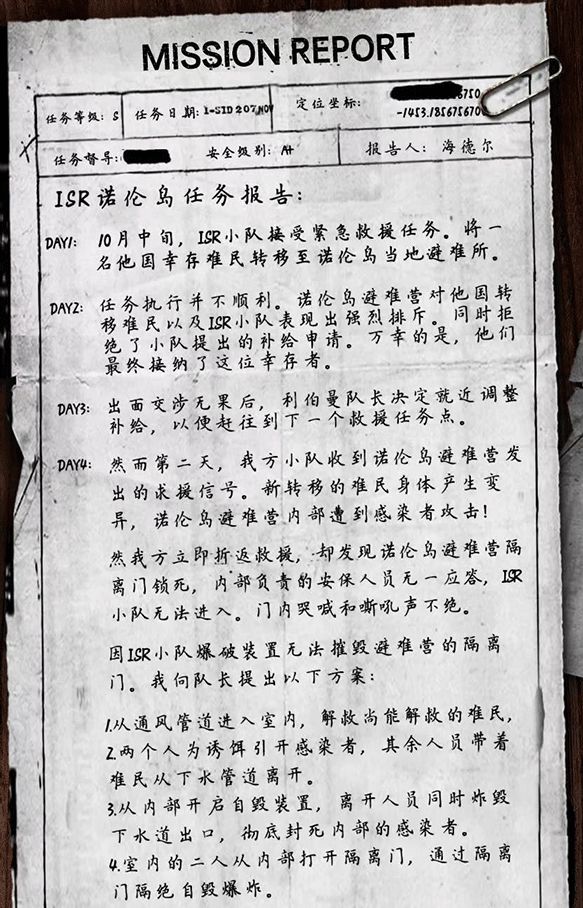 MISSION REPORT
任务等级: S 任务日期: 1-SID207,NOV 定位坐标: 6750
-1453.185675670
任务督导: 安全级别: A+ 报告人: 海德尔
ISR诺伦岛任务报告:
DAY1: 10月中旬，ISR小队接受紧急救援任务。将一
名他国幸存难民转移至诺伦岛当地避难所。
DAY2: 任务执行并不顺利。诺伦岛避难营对他国转
移难民以及ISR小队表现出强烈排斥。同时拒
绝了小队提出的补给申请。万幸的是，他们
最终接纳了这位幸存者。
DAY3: 出面交涉无果后，利伯曼队长决定就近调整
补给，以便赶往到下一个救援任务点。
DAY4: 然而第二天，我方小队收到诺伦岛避难营发
出的求援信号。新转移的难民身体产生变
异，诺伦岛避难营内部遭到感染者攻击!
然我方立即折返救援，却发现诺伦岛避难营隔
离门锁死，内部负责的安保人员无一应答，ISR
小队无法进入。门内哭喊和嘶吼声不绝。
因ISR小队爆破装置无法摧毁避难营的隔离
门。我向队长提出以下方案:
1.从通风管道进入室内，解救尚能解救的难民，
2.两个人为诱饵引开感染者，其余人员带着
难民从下水管道离开。
3.从内部开启自毁装置，离开人员同时炸毁
下水道出口，彻底封死内部的感染者。
4.室内的二人从内部打开隔离门，通过隔离
门隔绝自毁爆炸。